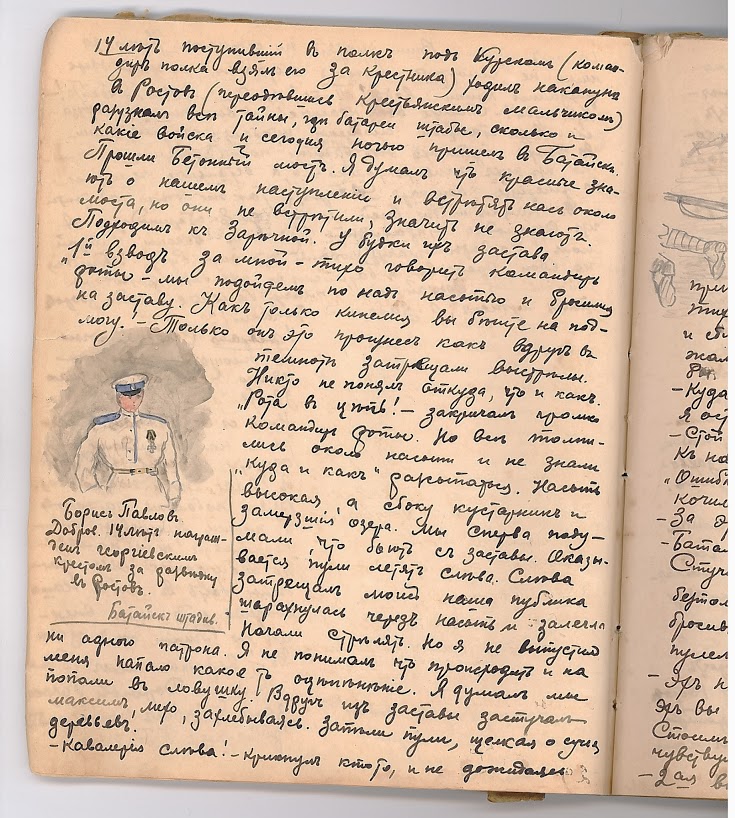 14 лѣтъ поступившiй въ полкъ подъ Курскомъ (коман-
диръ полка взялъ его за крестника) ходилъ наканунѣ
въ Ростовъ (переодѣвшись крестьянскимъ мальчикомъ)
разузналъ всѣ тайны, гдѣ батареи штабы, сколько и
какiе войска и сегодня ночью пришелъ въ Батайскъ.
Прошли Бетонный мостъ. Я думалъ что красные зна-
ютъ о нашемъ наступленiи и встрѣтятъ насъ около
моста, но они не встрѣтили, значитъ не знаютъ.
Подходимъ къ Зарѣчной. У будки ихъ застава
„1й взводъ за мной – тихо говоритъ командиръ
роты – мы подойдемъ по надъ насыпью и бросимся
на заставу. Какъ только кинемся вы бѣгите на под-
могу! – Только онъ это произнесъ какъ вдругъ въ
темнотѣ затрещали выстрѣлы.
Никто не понялъ откуда, что и какъ.
„Рота въ цѣпь! – закричалъ громко
командиръ роты. Но всѣ толпи-
лись около насыпи и не знали
„куда и какъ" разсыпаться. Насыпь
высокая, а сбоку кустарникъ и
замерзшiя озера. Мы сперва поду-
мали что бьютъ съ заставы. Оказы-
вается пули летятъ слѣва. Слѣва
затрещалъ наша публика
шарахнулась черезъ насыпь и залегла
Начали стрѣлять. Но я не выпустилъ
ни одного патрона. Я не понималъ что происходитъ и на
меня напало какое то оцѣпенѣнiе. Я думалъ мы
попали въ ловушку! Вдругъ изъ заставы застучалъ
максимъ, захлебываясь. Запѣли пули, щелкая о сучья
деревьевъ.
– Кавалерiя слѣва! – крикнулъ кто то, и не дожидаясь
Борисъ Павловъ
Добров. 14 лѣтъ награж-
денъ георгiевскимъ
крестомъ за развѣдку
въ Ростовъ.
Батайскъ штадив.
при
- Куда
я ост
- Стой
къ на
„Ошиб
кочил
- За д
- Бата
Стуч
бросив
пулем
- Эхъ н
эхъ вы
Стоимъ
чувству
- 2ая в